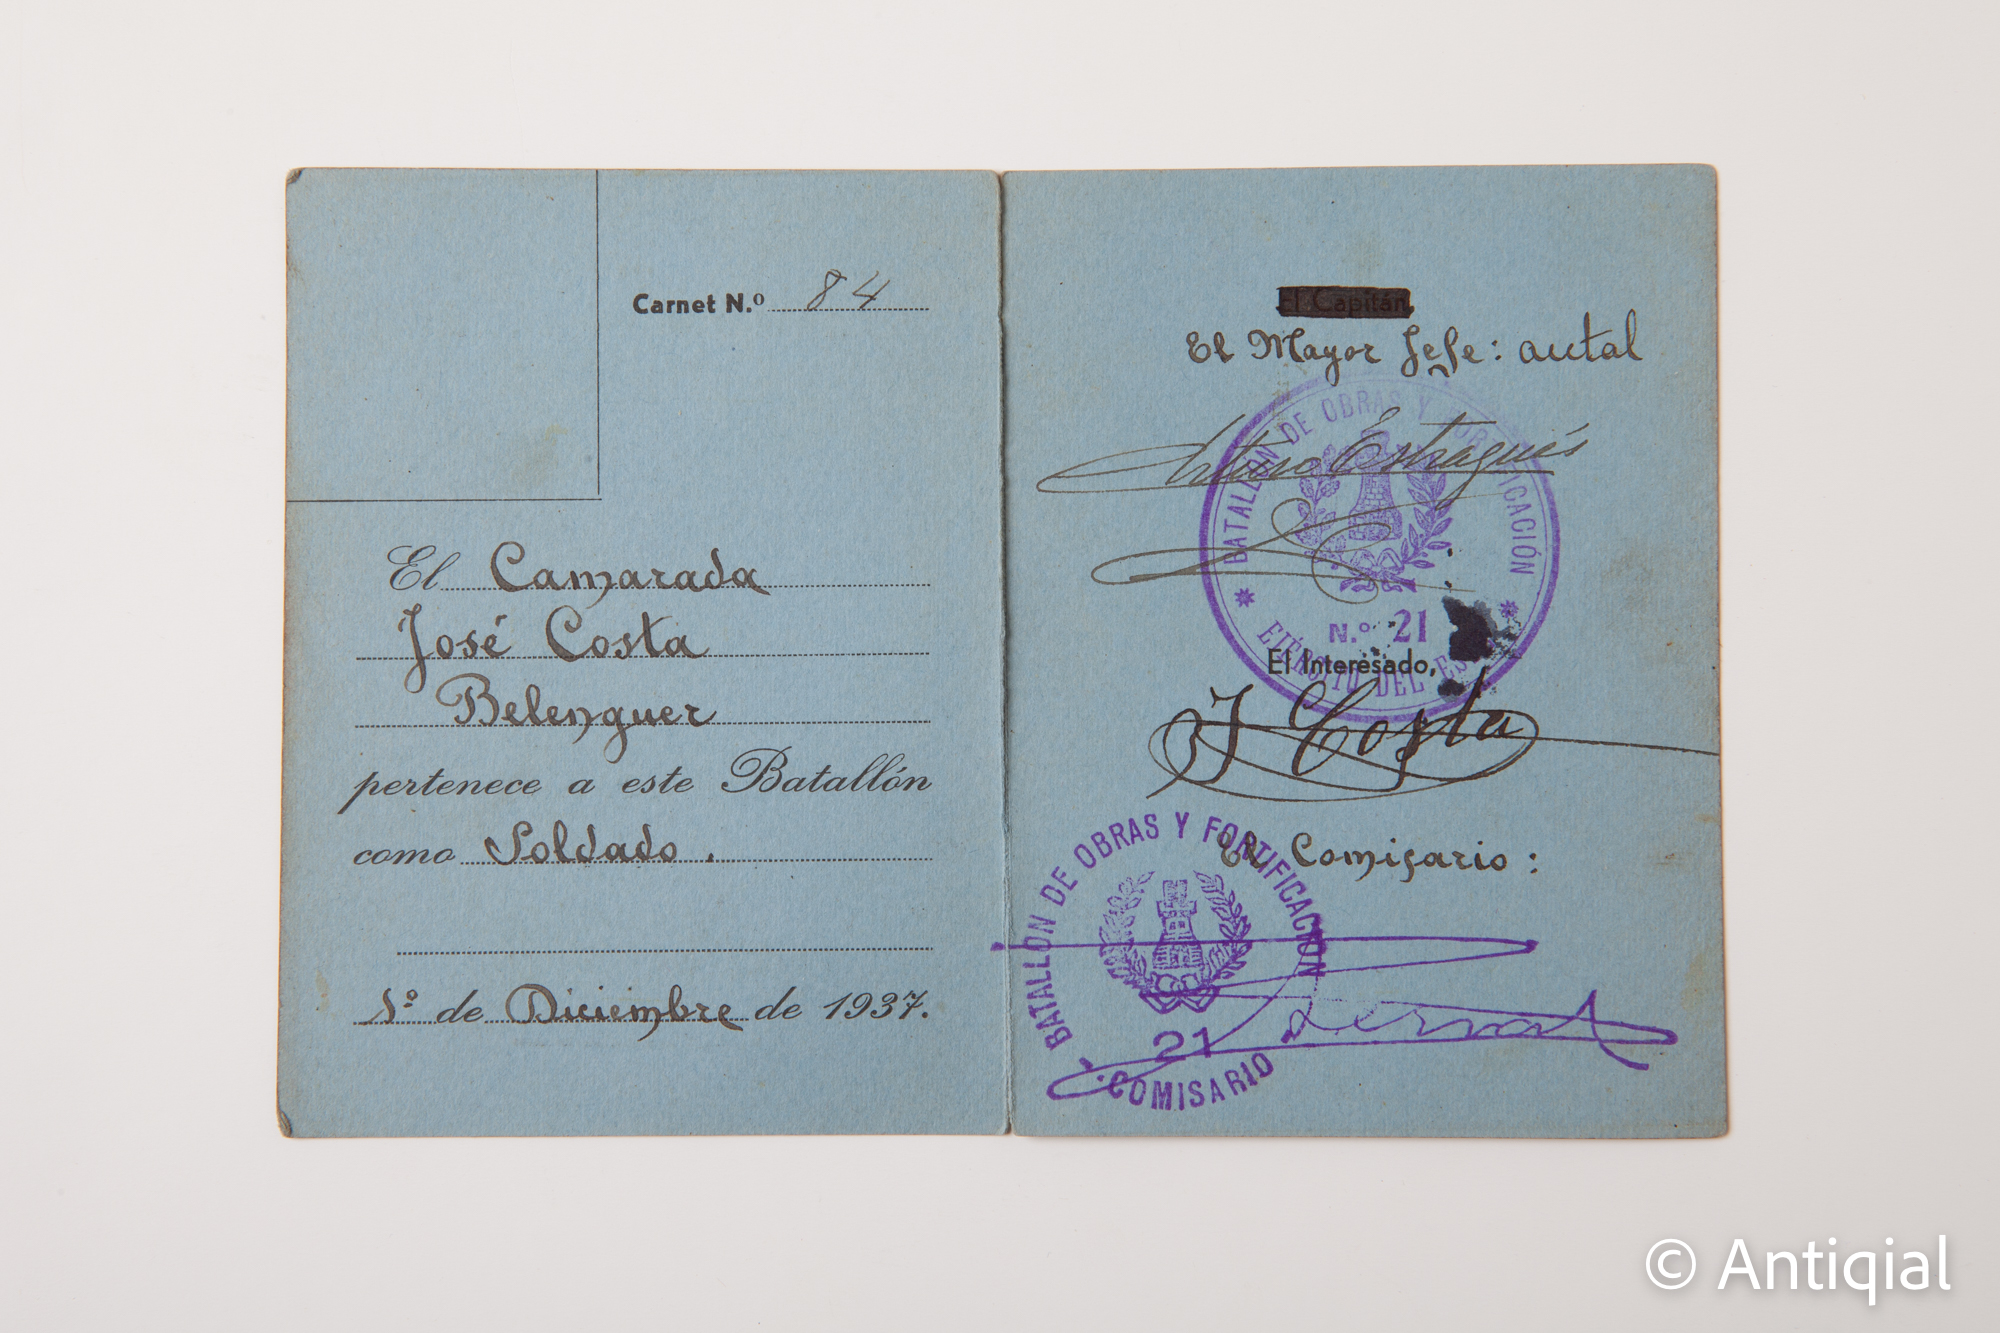 Carnet N.º 84
El Camarada
José Costa
Belenguer
pertenece a este Batallón
como Soldado.
1º de Diciembre de 1937.
El Capitán,
El Mayor Jefe: actal
Arturo Estragués
BATALLÓN DE OBRAS Y FORTIFICACIÓN
N.º 21
EJÉRCITO DEL ES
El Interesado,
J Costa
El Comisario:
BATALLON DE OBRAS Y FORTIFICACION
21
COMISARIO
© Antiqial